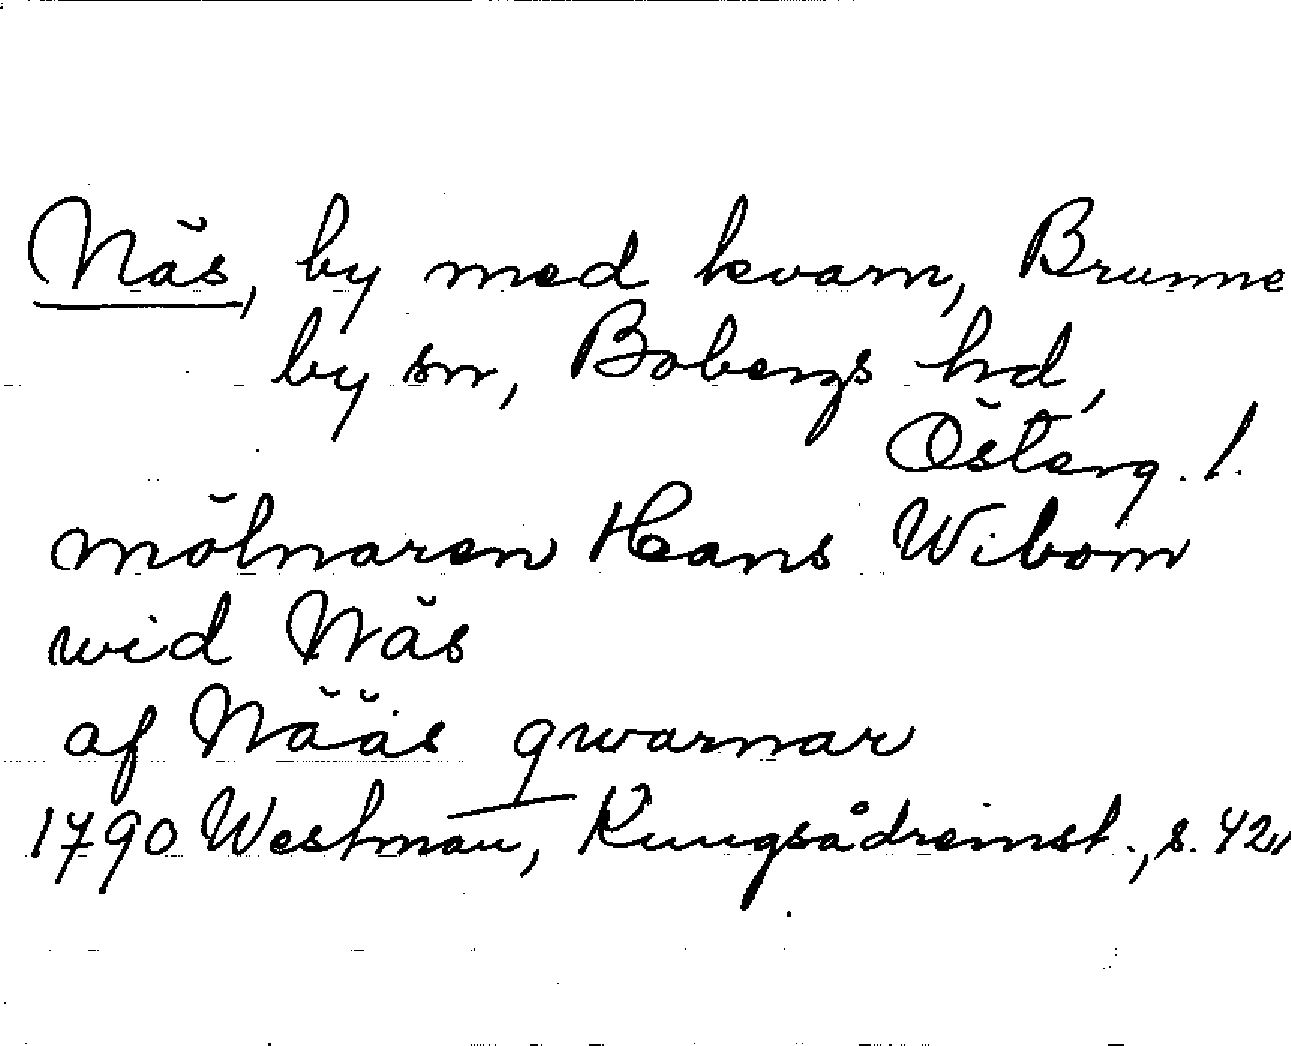 Näs, by med kvarn, Brunne
by sn, Bobergs hd,
Österg. l.
mölnaren Hans Wibom
wid Näs
af Nääs qwarnar
1790 Westman, Kungsådreinst., s. 42